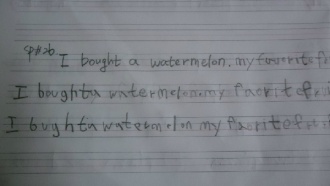 I bought a watermelon, my favorite f
I boughta watermelon my Facrite fr
I bughta watermelon my Facrite fru